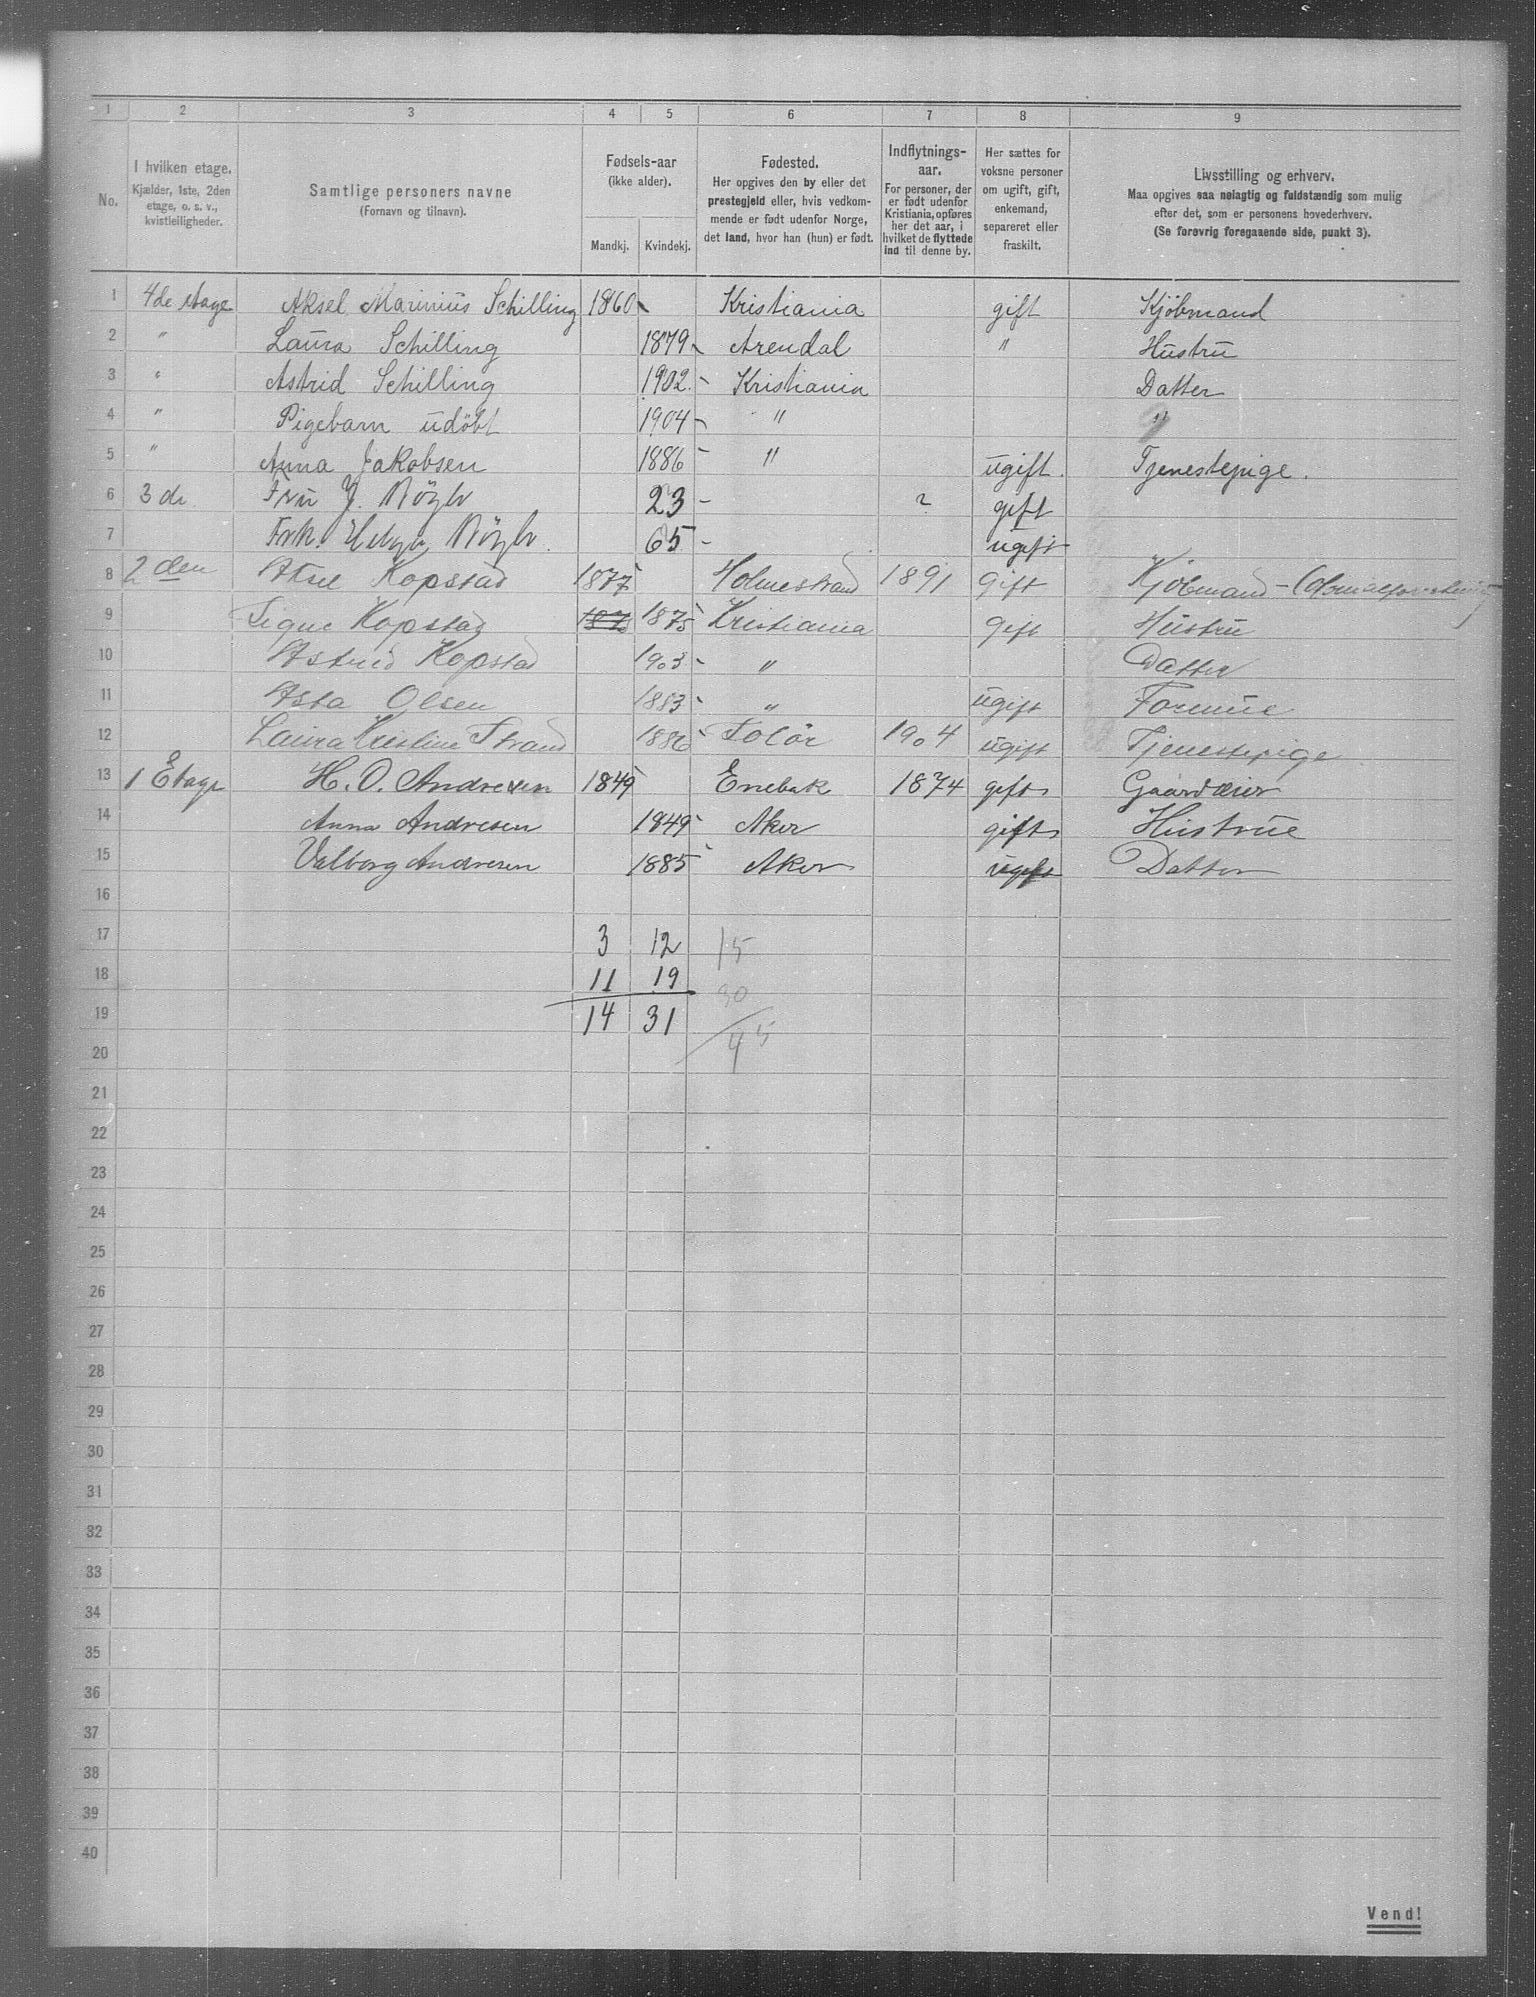 1 2 3 4 5 6 7 8 9
No.
I hvilken etage.
Kjælder, 1ste, 2den
etage, o. s. v.,
kvistleiligheder.
Samtlige personers navne
(Fornavn og tilnavn).
Fødsels-aar
(ikke alder).
Mandkj. Kvindekj.
Fødested.
Her opgives den by eller det
prestegjeld eller, hvis vedkom-
mende er født udenfor Norge,
det land, hvor han (hun) er født.
Indflytnings-
aar.
For personer, der
er født udenfor
Kristiania, opføres
her det aar, i
hvilket de flyttede
ind til denne by.
Her sættes for
voksne personer
om ugift, gift,
enkemand,
separeret eller
fraskilt.
Livsstilling og erhverv.
Maa opgives saa nøiagtig og fuldstændig som mulig
efter det, som er personens hovederhverv.
(Se forøvrig foregaaende side, punkt 3).
1 4de etage Aksel Marinius Schilling 1860 Kristiania gift Kjöbmand
2 " Laura Schilling 1879 Arendal " Hustru
3 " Astrid Schilling 1902 Kristiania Datter
4 " Pigebarn udöbt 1904 " "
5 " Anna Jakobsen 1886 " ugift. Tjenestepige.
6 3de Fru J. 23 ? gift
7 Frk. 65 ugift
8 2den Aksel Kopstad 1877 Holmestrand 1891 gift Kjöbmand -
9 Signe Kopstad 187 1875 Kristiania gift Hustru
10 Astrid Kopstad 1903 " Datter
11 Asta Olsen 1883 " ugift
12 Laura Kristine Strand 1886 Solör 1904 ugift Tjenestepige
13 1 Etage H. O. Andresen 1849 Enebak 1874 gift Gaardeier
14 Anna Andresen 1849 Aker gift Hustrue
15 Valborg Andresen 1885 Aker ugift Datter
16
17 3 12 15
18 11 19 30
19 14 31 45
20
21
22
23
24
25
26
27
28
29
30
31
32
33
34
35
36
37
38
39
40
Vend!